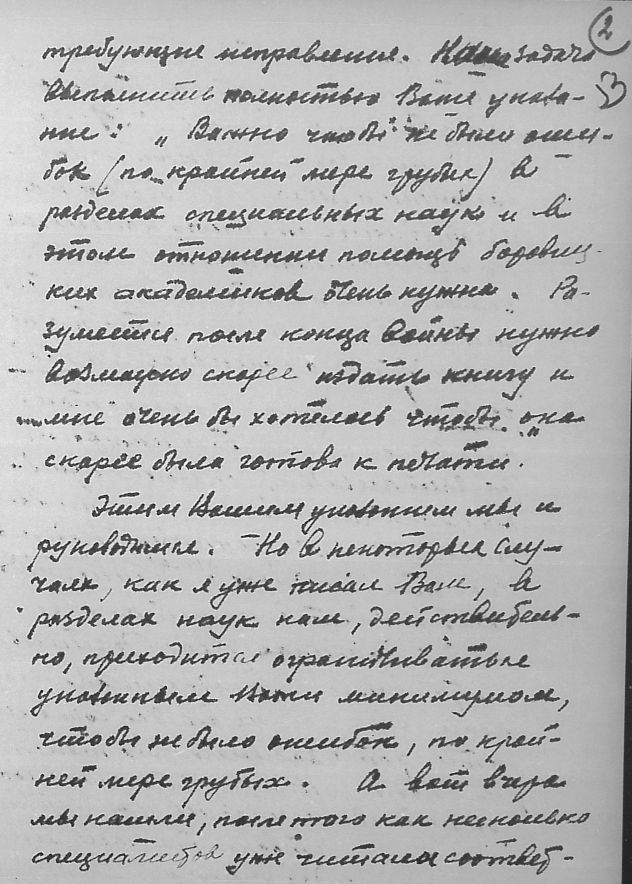 2
3
требующие исправления. Наша задача
выполнить полностью Ваше указа-
ние: „Важно чтобы не было оши-
бок (по крайней мере грубых) в
разделах специальных наук и в
этом отношении помощь боровиц-
ких академиков очень нужна. Ра-
зумеется после конца войны нужно
возможно скорее издать книгу и
мне очень бы хотелось чтобы она
скорее была готова к печати".
Этим Вашим указанием мы и
руководимся. Но в некоторых слу-
чаях, как я уже писал Вам, в
разделах наук нам, действитель-
но, приходится ограничиваться
указанным Вами минимумом,
чтобы не было ошибок, по край-
ней мере грубых. А вот вчера
мы нашли, после того как несколько
специалистов уже читали соответ-